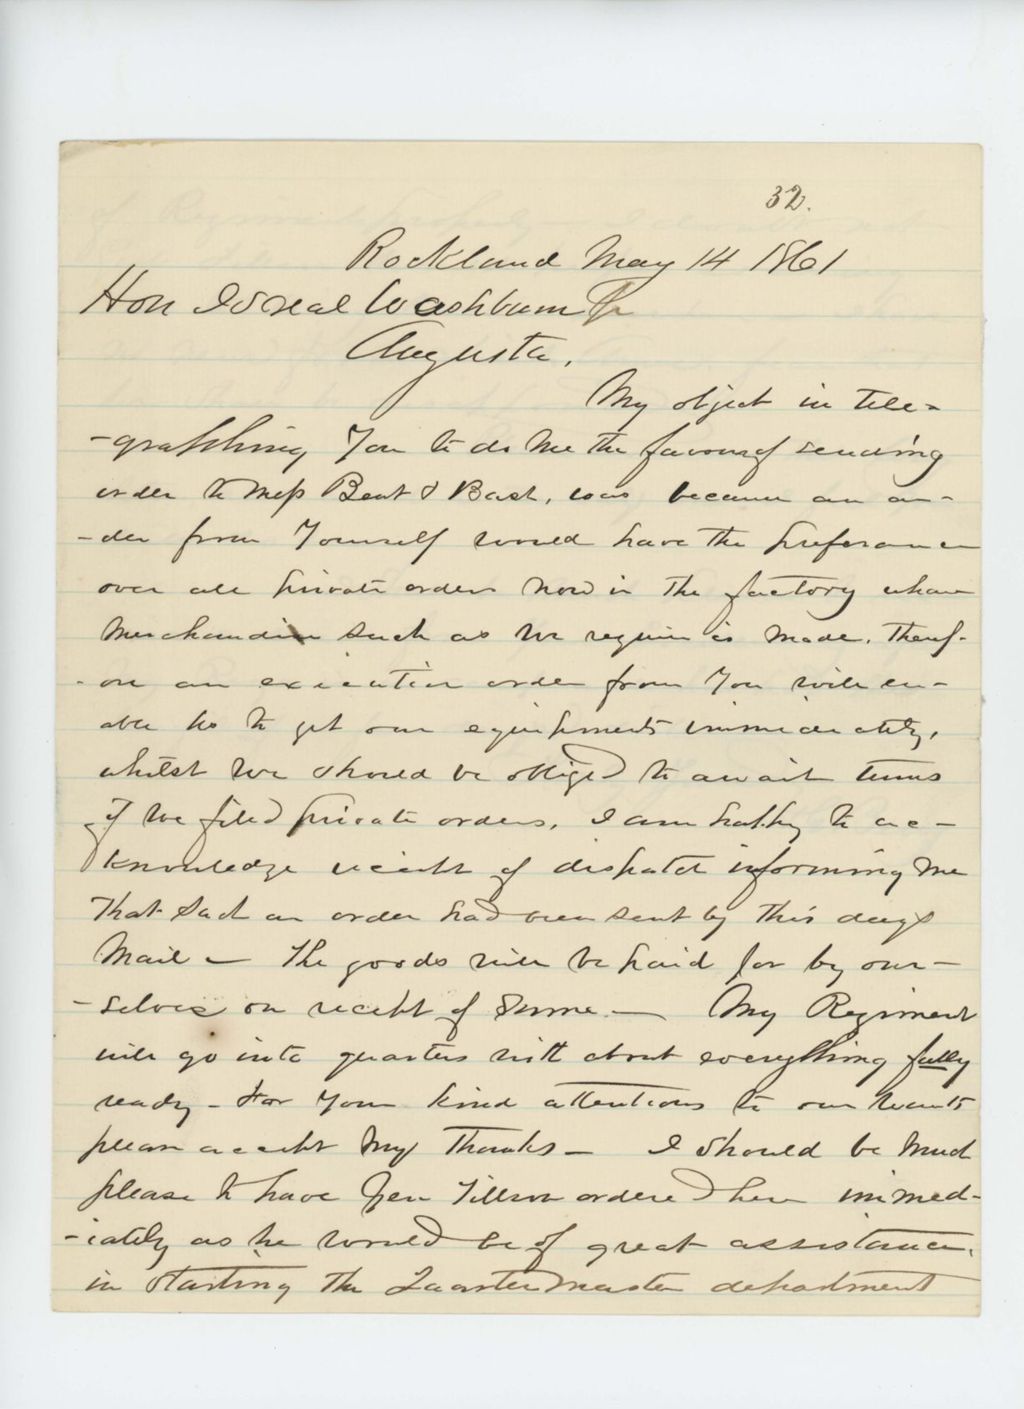 32.
Rockland May 14 1861
Hon Isreal Washburn Jr
Augusta.
My object in tele-
-graphing You to do me the favour of sending
order to Mess Bent & Bush, was because an or-
-der from Yourself would have the preference
over all private orders now in the factory whare
Merchandise such as we require is made. Theref-
-ore an execution order from You will en-
able us to get our equipments immediately,
whilst we should be obliged to await turns
if we filed private orders. I am happy to ac-
knowledge reciept of dispatch informing me
that such an order had been sent by this days
Mail - The goods will be paid for by our-
-selves on reciept of same - My Regiment
will go into quarters with about everything fully
ready - For Your kind attentions to our wants
please accept My Thanks - I should be much
please to have Gen Tillson ordered here immed-
-iately as he would be of great assistance,
in starting the Quarter Master department